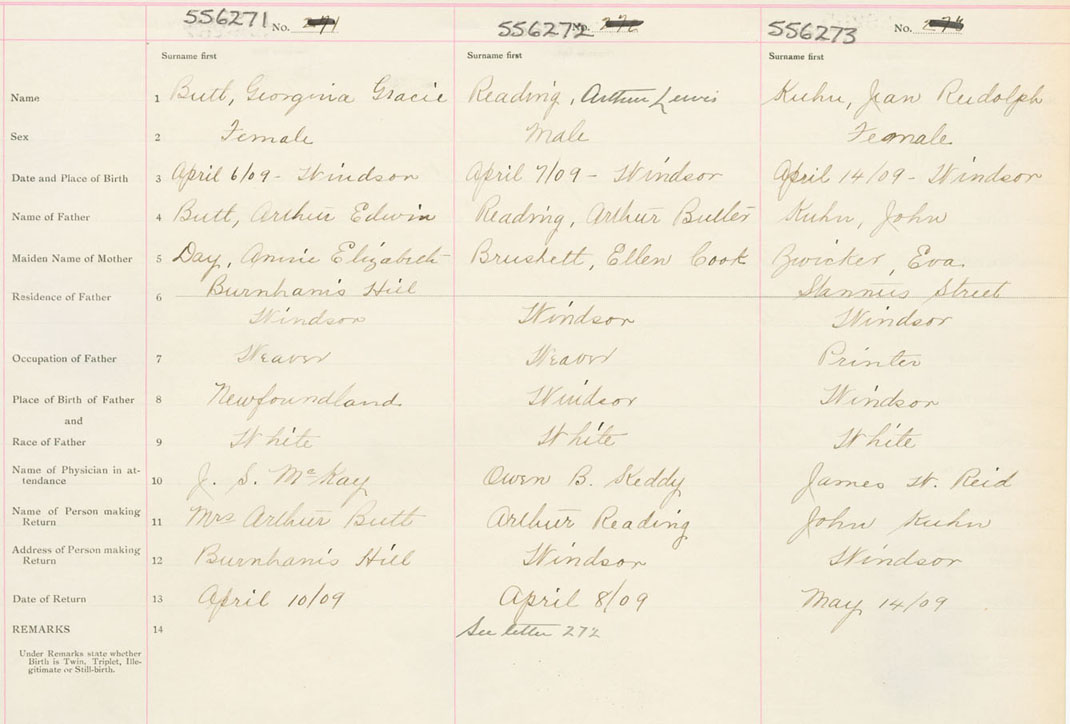 556271 No. 271 556272 No. 272 556273 No. 273
Surname first Surname first Surname first
Name 1 Butt, Georgina Gracie Reading, Arthur Lewis Kuhn, Jean Rudolph
Sex 2 Female Male Female
Date and Place of Birth 3 April 6/09 - Windsor April 7/09 - Windsor April 14/09 - Windsor
Name of Father 4 Butt, Arthur Edwin Reading, Arthur Butler Kuhn, John
Maiden Name of Mother 5 Day, Annie Elizabeth Brushett, Ellen Cook Zwicker, Eva
Burnham's Hill Stannus Street
Residence of Father 6
Windsor Windsor Windsor
Occupation of Father 7 Weaver Weaver Printer
Place of Birth of Father 8 Newfoundland Windsor Windsor
and
Race of Father 9 White White White
Name of Physician in at-
tendance 10 J. S. McKay Owen B. Keddy James W. Reid
Name of Person making
Return 11 Mrs Arthur Butt Arthur Reading John Kuhn
Address of Person making
Return 12 Burnham's Hill Windsor Windsor
Date of Return 13 April 10/09 April 8/09 May 14/09
REMARKS 14 See letter 272
Under Remarks state whether
Birth is Twin, Triplet, Ille-
gitimate or Still-birth.